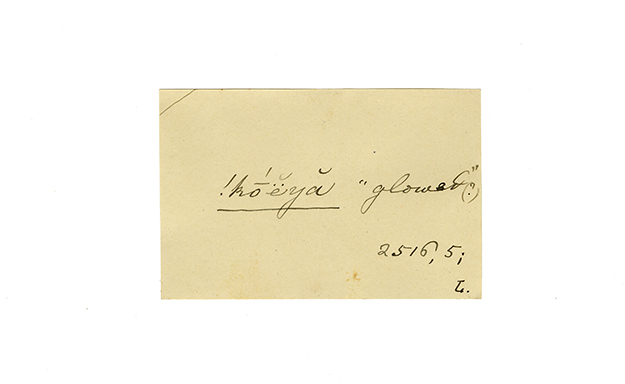 !kṓë̆yă "glowed"(?)
2516, 5;
L.